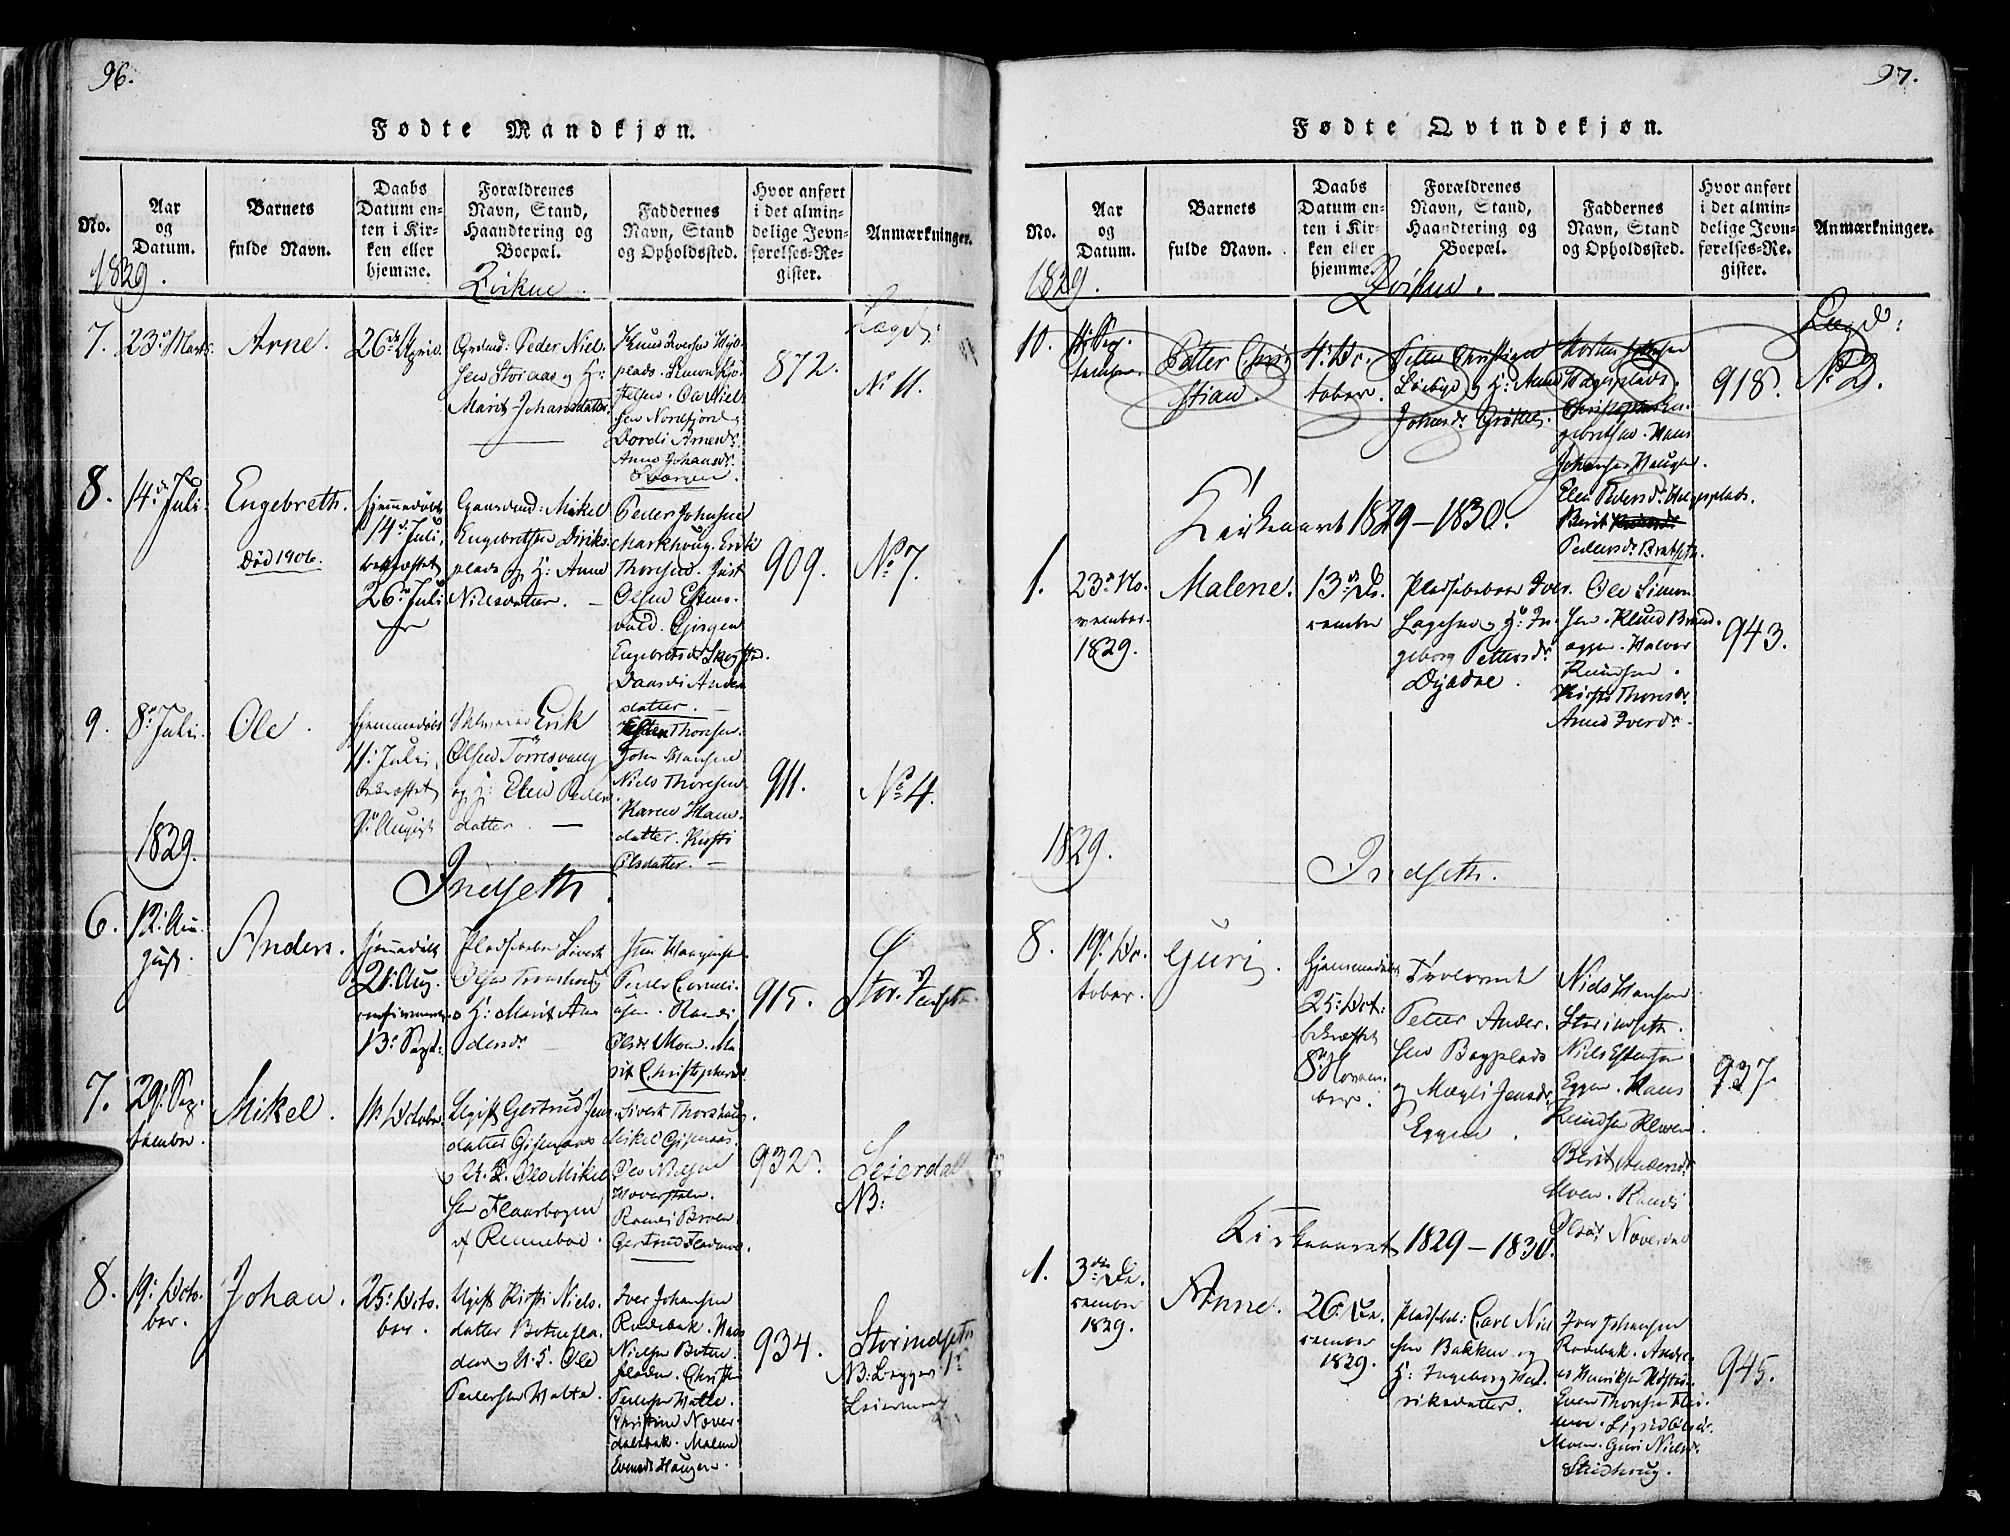 96.
Fødte Mandkjøn.
No.
Aar
og
Datum.
Barnets
fulde Navn.
Daabs
Datum en-
ten i Kir-
ken eller
hjemme.
Forældrenes
Navn, Stand,
Haandtering og
Boepæl.
Faddernes
Navn, Stand
og Opholdssted.
Hvor anført
i det almin-
delige Jevn-
førelses-Re-
gister.
Anmærkninger.
1829.
Qvikne.
7.
23de Marts
Arne.
26de April
Peder Niel-
sen Storaas og H:
Marit Johansdatter
Knud Iversen
plads. Simon
Ole Niel-
sen Nordfjord
Dordi Arnesdr.
Anne Johansdr.
872.
Laegd:
No 11.
8.
14de Juli
Engebreth.
Død 1906.
hjemmedøbt
14de Juli,
bekræftet
26de Juli
Gaardmd: Mikel
Engebretsen Diriks-
plads og H: Anne
Nielsdatter. —
Peder Johnsen
Markhoug. Erik
Thoresen.
Olsen Estens-
vold. Jørgen
Engebretsdr Skogstad.
datter. —
909.
No 7.
9.
8de Juli
Ole.
hjemmedøbt
11: Juli,
bekræftet
9de August
Erik
Olsen Torresvang
og H: Elen Peders-
datter. —
Esten Thoresen.
John Hansen
Niels Thoresen
Karen Hans-
datter. Kirsti
Olsdatter. —
911.
No 4.
1829.
Indseth.
6.
12: Au-
gust
Anders.
hjemmedøbt
21: Aug.
confirmeret
13: Sept:
Pladsebr Sivert
Olsen Tronshoug
og H: Marit An-
dersdr —
Peder Corneli-
usen. Randi
Olsdr Moen. Ma-
rit Christophersdr
915.
Stor-Indseth
7.
29: Sep-
tember.
Mikel.
11: October
Ugift Gertrud Jens-
datter Gisenaas
og U. K. Ole Mikel-
sen Flaarbogen
af Renneboe.
Sivert Thorshaug.
Mikel Gisenaas
Ole Nielsen
Hoverstølen.
Randi Broen
Gertrud
932.
Leierdal
NB:
8.
19: Octo-
ber.
Johan.
25: Octo-
ber.
Ugift Kirsti Niels-
datter Botnefla-
den og U. S. Ole
Pedersen Walte.
Iver Johansen
Roaebak. Hans
Nielsen Botne-
fladen. Christen
Pedersen Walte.
Christine Næver-
dalsbak. Malene
Evensdr Haugen.
934.
Storindseth
NB: Begges 1ste
Leiermaal
97.
Fødte Qvindekjøn.
No.
Aar
og
Datum.
Barnets
fulde Navn.
Daabs
Datum en-
ten i Kir-
ken eller
hjemme.
Forældrenes
Navn, Stand,
Haandtering og
Boepæl.
Faddernes
Navn, Stand
og Opholdssted.
Hvor anført
i det almin-
delige Jevn-
førelses-Re-
gister.
Anmærkninger.
1829.
Qvikne.
10.
11: Sep-
tember.
Petter Chri-
stian.
4: Oc-
tober.
Petter Christian
og H: Anne
Johnsdr
gebretsen. Hans
Johansen Haugen.
Elen Pedersdr
Berit
Pedersdr Bratseth.
918.
Laegd:
No 2.
Kirkeaaret 1829 — 1830.
1.
23de No-
vember.
1829.
Malene.
13de De-
cember
Pladsebeboer Iver
Lagesen og H: In-
geborg Pettersdr
Dyådal.
Ole Simon-
sen. Knud Brænd-
eggen. Halvor
Knudsen.
Kirsti Thoresdr
Anne Iversdr.
943.
1829.
Indseth.
8.
19: Oc-
tober.
Guri.
Hjemmedøbt
25: Oct:
bekræftet
8de Novem-
ber.
Petter Ander-
sen Bagplads
og Magli Jensdr
Eggen.
Niels Hansen
Storindseth.
Niels Estensen
Eggen. Hans
Knudsen Kleven
Berit Andersdr
Moen. Randi
Olsdr Næverdal
937.
Kirkeaaret 1829 — 1830.
1.
3die De-
cember
1829.
Anne.
26: De-
cember
1829.
Pladsbb: Carl Niel-
sen Bakken og
H: Ingeborg Hen-
riksdatter.
Iver Johansen
Roaebak. Andre-
as Henriksen
Even Thoresen
Sigrid Olsdr.
Moen. Guri Nielsdr.
Studshoug.
945.